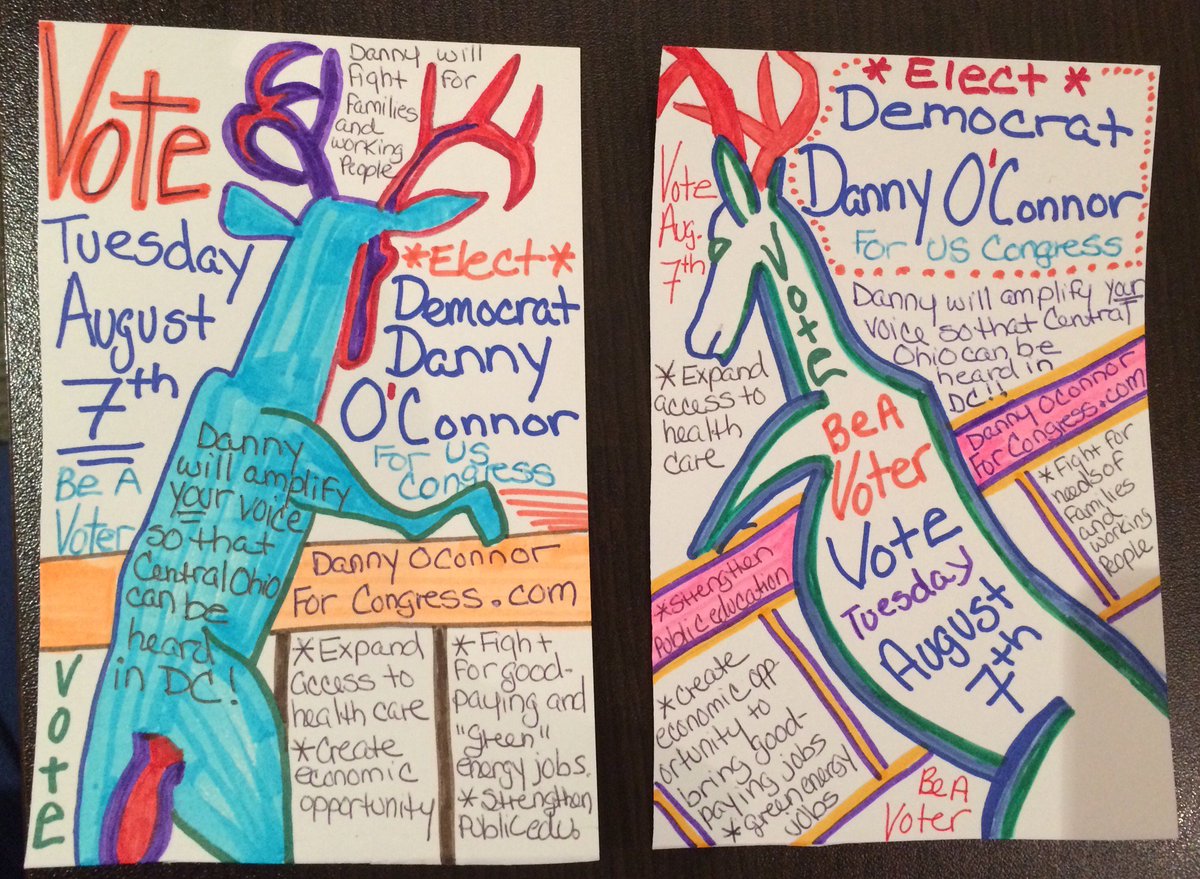 Vote
Tuesday
August
7th
Be A
Voter
Vote
Danny will
Fight for
Families
and
working
People
*Elect*
Democrat
Danny
O'Connor
For US
Congress
Danny
will amplify
your voice
so that
Central Ohio
can be
heard
in DC!
Danny OConnor
For Congress.com
*Expand
access to
health care
*Create
economic
opportunity
*Fight
for good-
paying and
"green"
energy jobs.
*Strengthen
Public edu.
*Elect*
Democrat
Danny O'Connor
For US Congress
Vote
Aug.
7th
Vote
Danny will amplify your
voice so that Central
Ohio can be
heard in
DC!!
*Expand
access to
health
care
Danny OConnor
For Congress.com
Be A
Voter
Vote
Tuesday
August
7th
*Fight for
needs of
Families
and
working
People
*Strengthen
Public education
*Create
economic op-
portunity to
bring good-
paying jobs
*green energy
jobs
Be A
Voter